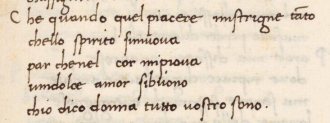 C he quando quel piacere mstrigne tãto
chello spirito sinuoua
par chenel cor mipioua
undolce amor sibuono
chio dico donna tutto uostro sono.